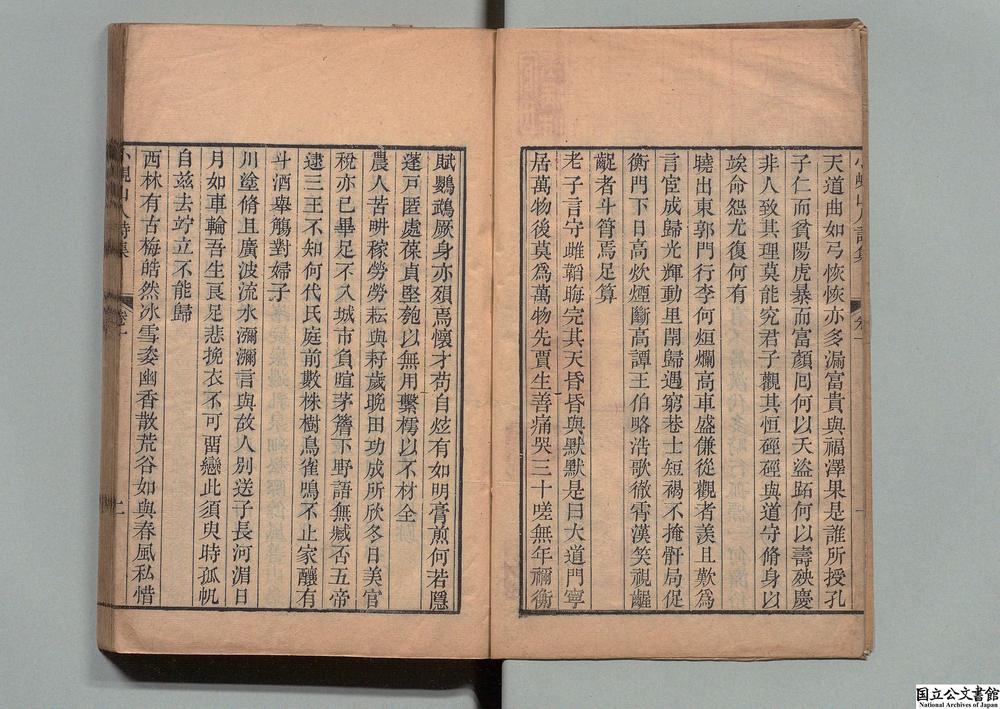 天道曲如弓恢恢亦多漏富貴與福澤果是誰所授孔
子仁而貧陽虎暴而富顏囘何以夭盜跖何以壽殃慶
非人致其理莫能究君子觀其恒硜硜與道守脩身以
竢命怨尤復何有
曉出東郭門行李何烜爛高車盛傔從觀者羨且歎爲
言宦成歸光輝動里閈歸遇窮巷士短褐不掩骭局促
衡門下日高炊煙斷高譚王伯略浩歌徹霄漢笑視齷
齪者斗筲焉足算
老子言守雌韜晦完其天昏昏與默默是曰大道門寧
居萬物後莫爲萬物先賈生善痛哭三十嗟無年禰衡
賦鸚鵡厥身亦殞焉懷才苟自炫有如明膏煎何若隱
蓬戶匿處葆貞堅匏以無用繫樗以不材全
農人苦畊稼勞勞耘與耔歲晚田功成所欣冬日美官
稅亦已畢足不入城市負暄茅簷下野語無臧否五帝
逮三王不知何代氏庭前數株樹鳥雀鳴不止家釀有
斗酒舉觴對婦子
川塗脩且廣波流水瀰瀰言與故人別送子長河湄日
月如車輪吾生良足悲挽衣不可畱戀此須臾時孤帆
自兹去竚立不能歸
西林有古梅皓然冰雪姿幽香散荒谷如與春風私惜
山人詩集
卷一
国立公文書館
National Archives of Japan